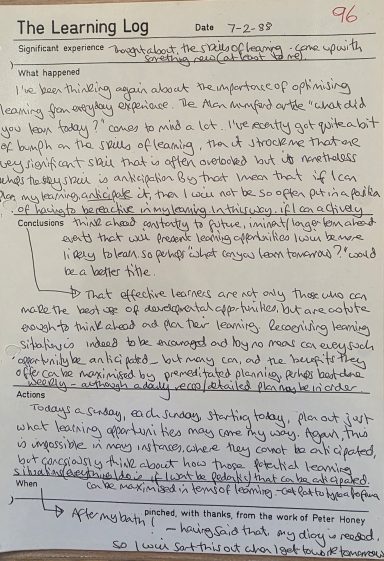 96
The Learning Log Date 7-2-88
Significant experience Thought about, the skills of learning - come up with
something new (at least to me).
What happened
I've been thinking again about the importance of optimising
learning from everyday experience. The Alan Mumford article "what did
you learn today?" comes to mind a lot. I've recently got quite a bit
of bumph on the skills of learning, then it struck me that one
very significant skill that is often overlooked but is nonetheless
perhaps the key skill is anticipation. By that I mean that if I can
plan my learning, anticipate it, then I will not be so often put in a position
of having to be reactive in my learning. In this way, if I can actively
Conclusions think ahead constantly to future, iminent/longer term ahead
events that will present learning opportunities I will be more
likely to learn. So perhaps "what can you learn tomorrow?" would
be a better title.
That effective learners are not only those who can
make the best use of developmental opportunities, but are astute
enough to think ahead and plan their learning. Recognising learning
situations is indeed to be encouraged and by no means can every such
opportunity be anticipated - but many can, and the benefits they
offer can be maximised by premeditated planning, perhaps best done
weekly - although a daily record/detailed plan may be in order
Actions
Todays a sunday, each sunday, starting today, plan out just
what learning opportunities may come my way. Again, this
is impossible in many instances, where they cannot be anticipated,
but conciously think about how those potential learning
situations (everything I do is if I want to be pedantic) that can be anticipated
When can be maximised in terms of learning -
After my bath!
pinched, with thanks, from the work of Peter Honey
- having said that my diary is needed,
so I will sort this out when I get to work tomorrow